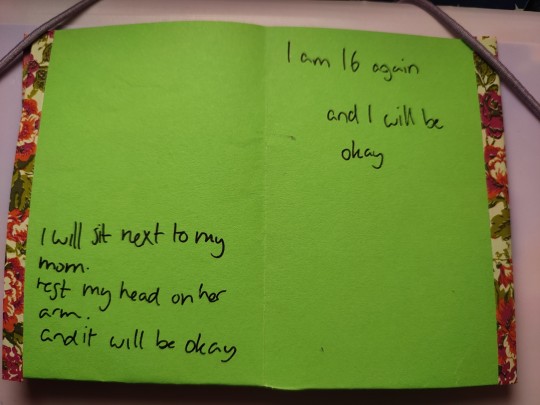 I will sit next to my
mom.
rest my head on her
arm.
and it will be okay
I am 16 again
and I will be
okay